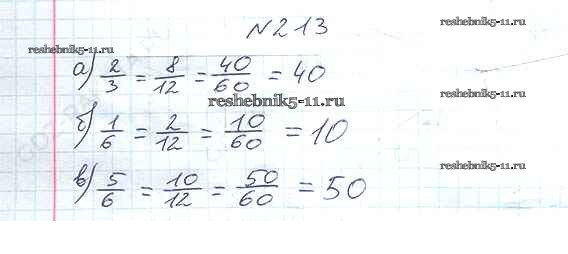 №213
reshebnik5-11.ru
reshebnik5-11.ru
а) 2/3 = 8/12 = 40/60 = 40
reshebnik5-11.ru
б) 1/6 = 2/12 = 10/60 = 10
reshebnik5-11.ru
в) 5/6 = 10/12 = 50/60 = 50
reshebnik5-11.ru